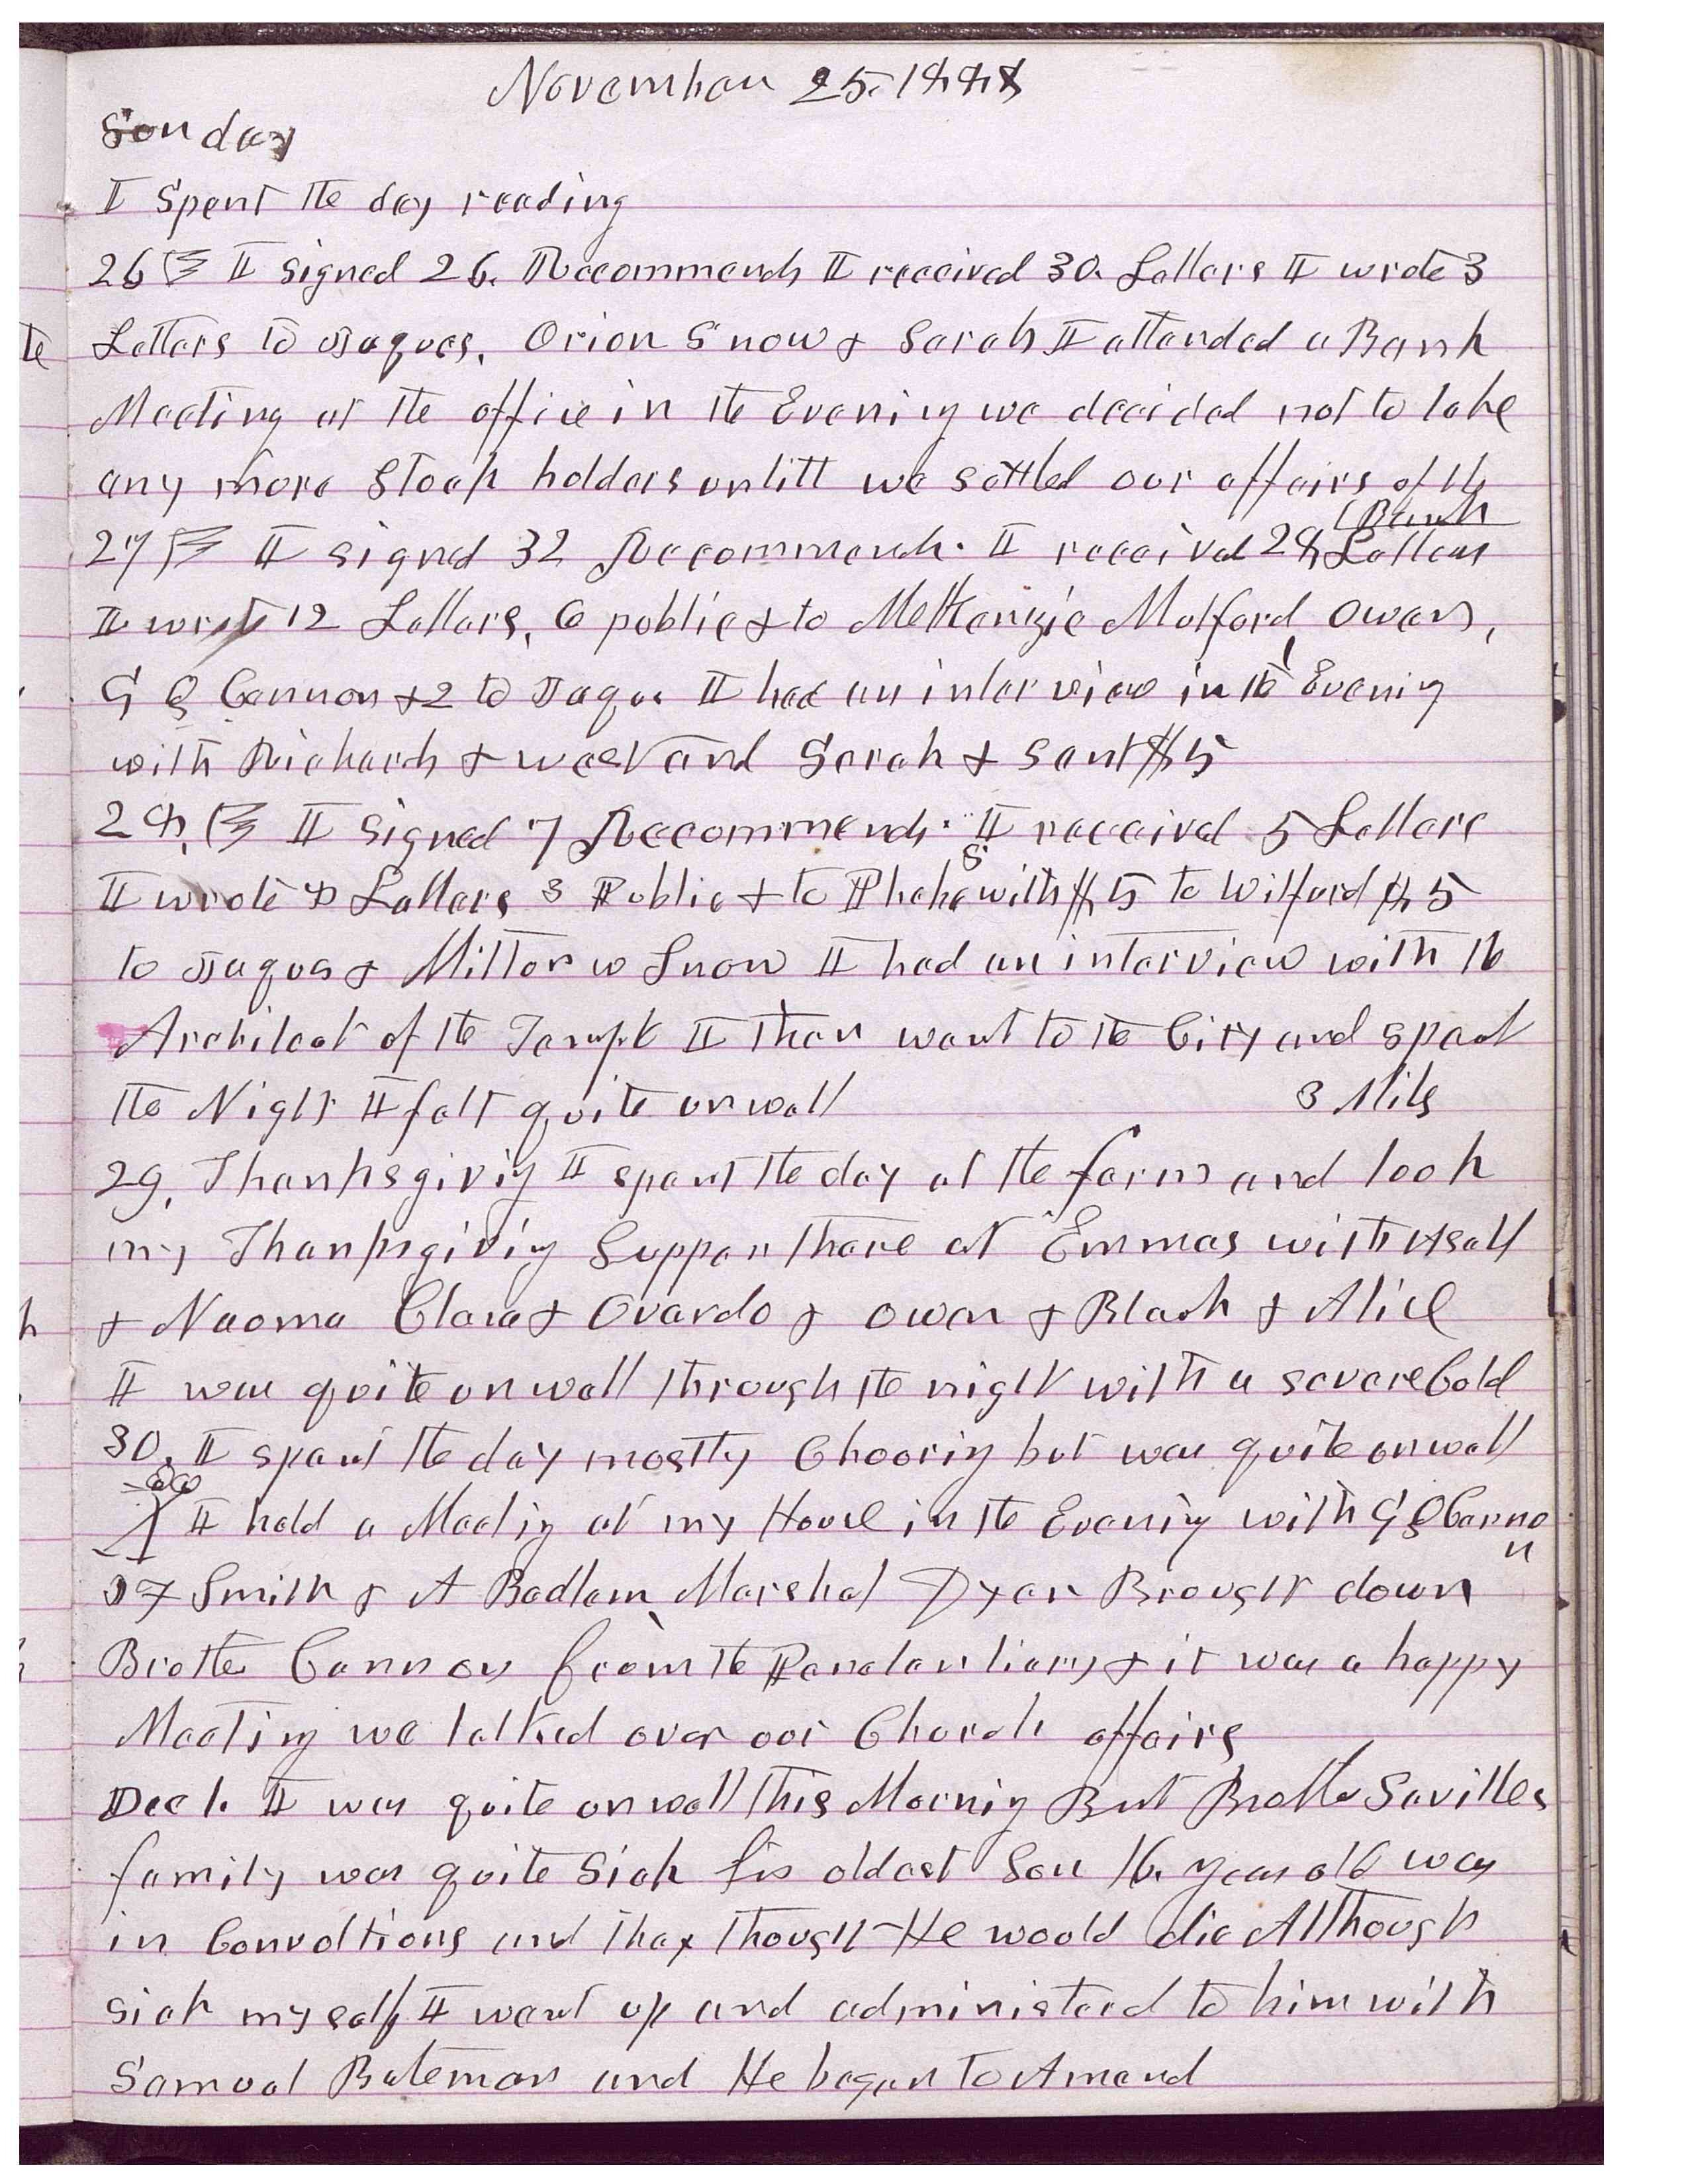 November 25. 1888
Sunday
I Spent the day reading
26 I signed 26. Recommends I received 30. Letters I wrote 3
Letters to Jaques, Orion Snow & Sarah I attended a Bank
Meeting at the office in the Evening we decided not to take
any more Stock holders untill we settled our affairs of the
(Bank
27 I signed 32 Recommends. I received 28 Letters
I wrote 12 Letters, 6 public & to McKenzie Mulford, Owen,
G Q Cannon & 2 to Jaques I had an interview in the Evening
with Richards & west and Sarah & Sent $5
28, I signed 7 Recommends. I received 5 Letters
I wrote 8 Letters 3 Public & to Phebe S with $5 to Wilford $5
to Jaques & Milton W Snow I had an interview with the
Architect of the Temple I then went to the City and spent
the Night I felt quite unwell 3 Miles
29, Thanksgiving I spent the day at the farm and took
my Thanksgiving Supper there at Emmas with Asahel
& Naoma Clara & Ovando & Owen & Blanch & Alice
I was quite unwell through the night with a severe Cold
30, I spent the day mostly Chooring but was quite unwell
I held a Meeting at my House in the Evening with G Q Canno
n
J F Smith & A Badlam Marshal Dyer Brought down
Brother Cannon from the Penetentiary & it was a happy
Meeting we talked over our Church affairs
Dec 1. I was quite unwell this Morning But Brother Savilles
family was quite Sick his oldest Son 16. years old was
in Convultions and they thought He would die Although
sick myself I went up and administered to him with
Samuel Bateman and He began to Amend